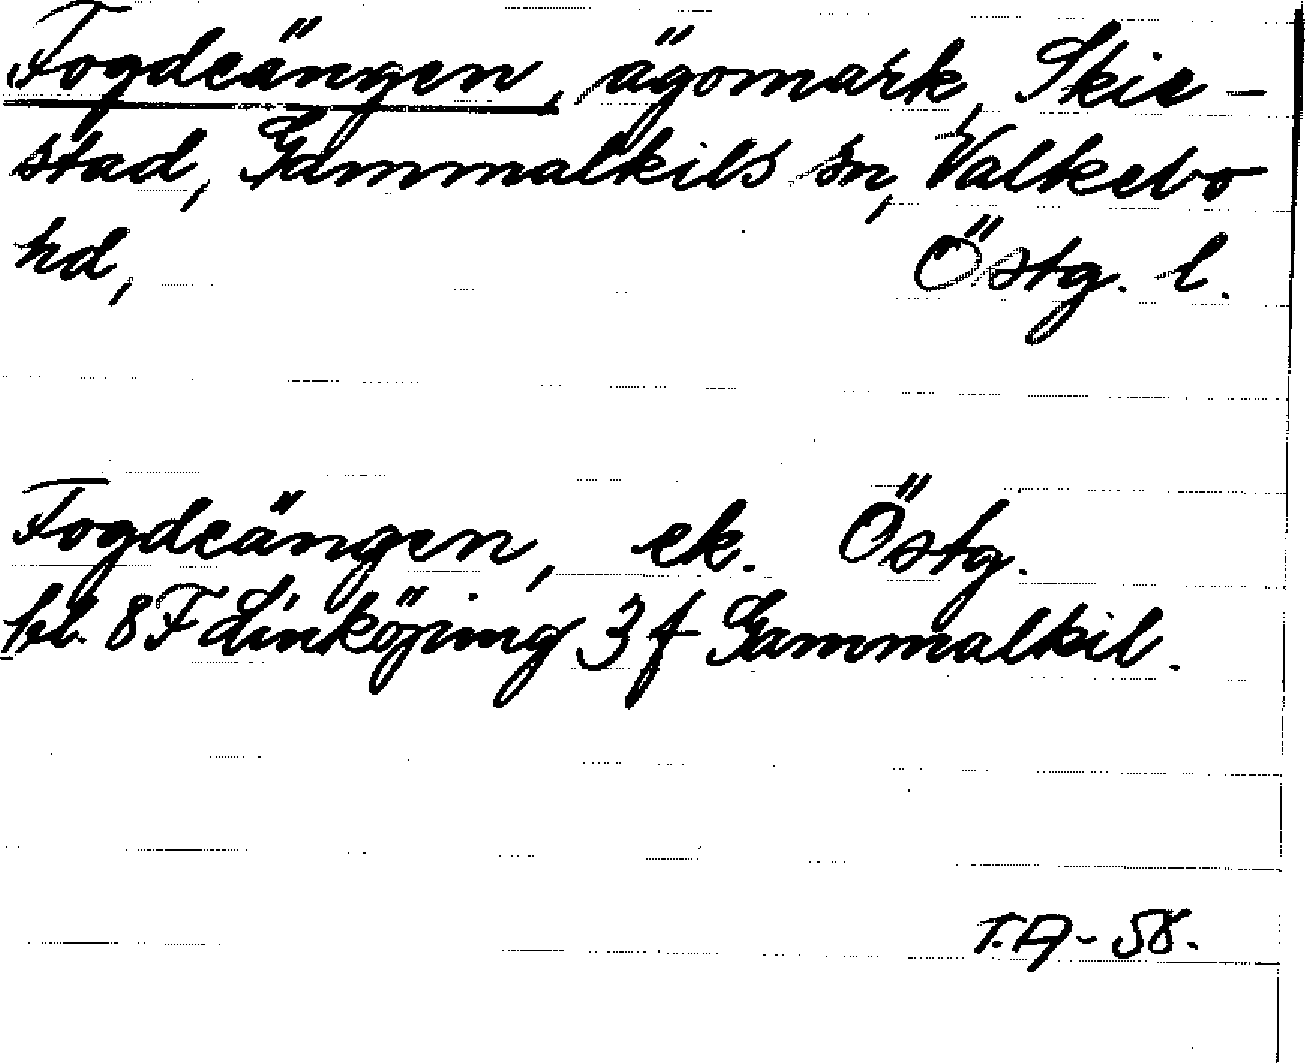 Fogdeängen, ägomark, Skie-
stad, Gammalkils sn, Valkebo
hd, Östg. l.
Fogdeängen, ek. Östg.
bl. 8F Linköping 3 f Gammalkil.
T.A-58.